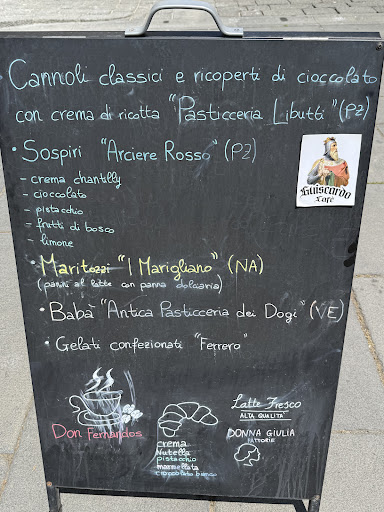 • Cannoli classici e ricoperti di cioccolato
con crema di ricotta "Pasticceria Libutti" (PZ)
• Sospiri "Arciere Rosso" (PZ)
- crema chantilly
- cioccolato
- pistacchio
- frutti di bosco
- limone
• Maritozzi "I Marigliano" (NA)
(panini al latte con panna dolciaria)
• Babà "Antica Pasticceria dei Dogi" (VE)
• Gelati confezionati "Ferrero"
Guiscardo
Cafè
Don Fernandos
crema
Nutella
pistacchio
marmellata
cioccolato bianco
Latte Fresco
ALTA QUALITA'
DONNA GIULIA
FATTORIE